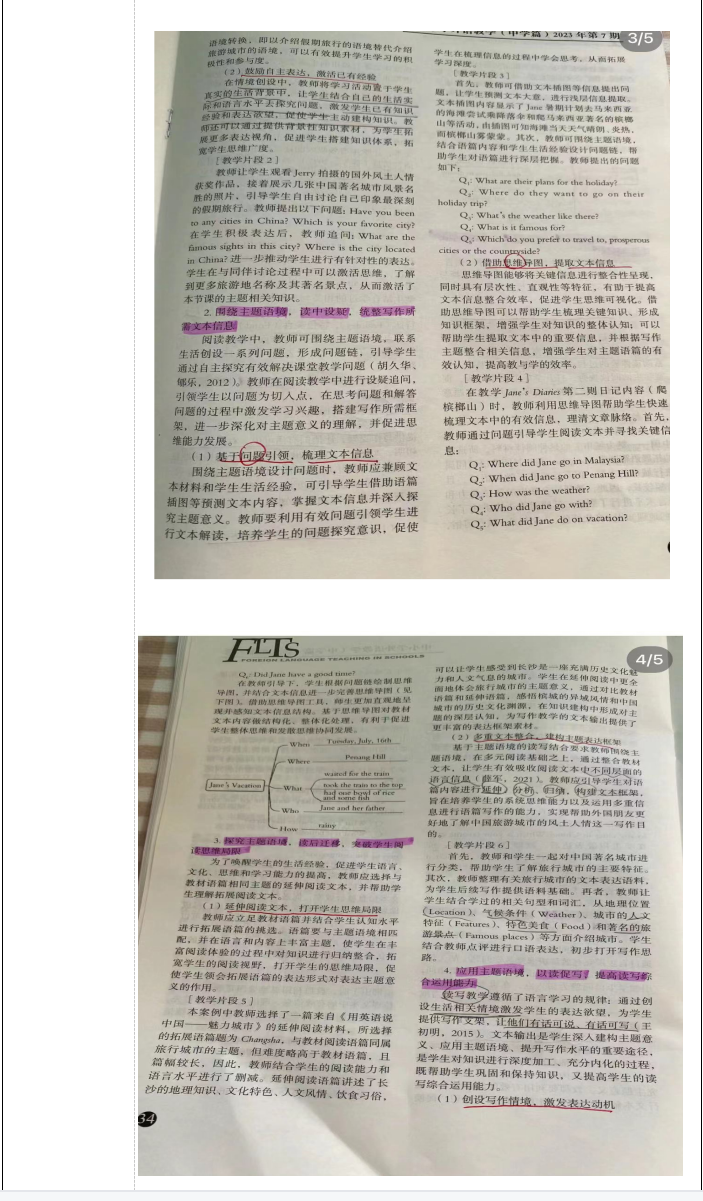 外语教学（中学篇）2023年第7期
3/5
语境转换，即以介绍假期旅行的语境替代介绍
旅游城市的语境，可以有效提升学生学习的积
极性和参与度。
（2）鼓励自主表达，激活已有经验
在情境创设中，教师将学习活动置于学生
真实的生活背景中，让学生结合自己的生活实
际和语言水平去探究问题，激发学生已有知识
经验和表达欲望，促使学生主动建构知识。教
师还可以通过提供背景性知识素材，为学生拓
展更多表达视角，促进学生搭建知识体系，拓
宽学生思维广度。
［教学片段2］
教师让学生观看Jerry拍摄的国外风土人情
获奖作品，接着展示几张中国著名城市风景名
胜的照片，引导学生自由讨论自己印象最深刻
的假期旅行。教师提出以下问题：Have you been
to any cities in China? Which is your favorite city?
在学生积极表达后，教师追问：What are the
famous sights in this city? Where is the city located
in China?进一步推动学生进行有针对性的表达。
学生在与同伴讨论过程中可以激活思维，了解
到更多旅游地名称及其著名景点，从而激活了
本节课的主题相关知识。
2. 围绕主题语境，读中设疑，统整写作所
需文本信息
阅读教学中，教师可围绕主题语境，联系
生活创设一系列问题，形成问题链，引导学生
通过自主探究有效解决课堂教学问题（胡久华、
郇乐，2012）。教师在阅读教学中进行设疑追问，
引领学生以问题为切入点，在思考问题和解答
问题的过程中激发学习兴趣，搭建写作所需框
架，进一步深化对主题意义的理解，并促进思
维能力发展。
（1）基于问题引领，梳理文本信息
围绕主题语境设计问题时，教师应兼顾文
本材料和学生生活经验，可引导学生借助语篇
插图等预测文本内容，掌握文本信息并深入探
究主题意义。教师要利用有效问题引领学生进
行文本解读，培养学生的问题探究意识，促使
学生在梳理信息的过程中学会思考，从而拓展
学习深度。
［教学片段3］
首先，教师可借助文本插图等信息提出问
题，让学生预测文本大意，进行浅层信息提取。
文本插图内容显示了Jane暑期计划去马来西亚
的海滩尝试乘降落伞和爬马来西亚著名的槟榔
山等活动，由插图可知海滩当天天气晴朗、炎热，
而槟榔山雾蒙蒙。其次，教师可围绕主题语境，
结合语篇内容和学生生活经验设计问题链，帮
助学生对语篇进行深层把握。教师提出的问题
如下：
Q₁: What are their plans for the holiday?
Q₂: Where do they want to go on their
holiday trip?
Q₃: What's the weather like there?
Q₄: What is it famous for?
Q₅: Which do you prefer to travel to, prosperous
cities or the countryside?
（2）借助思维导图，提取文本信息
思维导图能够将关键信息进行整合性呈现，
同时具有层次性、直观性等特征，有助于提高
文本信息整合效率，促进学生思维可视化。借
助思维导图可以帮助学生梳理关键知识、形成
知识框架，增强学生对知识的整体认知；可以
帮助学生提取文本中的重要信息，并根据写作
主题整合相关信息，增强学生对主题语篇的有
效认知，提高教与学的效率。
［教学片段4］
在教学Jane's Diaries第二则日记内容（爬
槟榔山）时，教师利用思维导图帮助学生快速
梳理文本中的有效信息，理清文章脉络。首先，
教师通过问题引导学生阅读文本并寻找关键信
息：
Q₁: Where did Jane go in Malaysia?
Q₂: When did Jane go to Penang Hill?
Q₃: How was the weather?
Q₄: Who did Jane go with?
Q₅: What did Jane do on vacation?
FLTS
FOREIGN LANGUAGE TEACHING IN SCHOOLS
4/5
Q₆: Did Jane have a good time?
在教师引导下，学生根据问题链绘制思维
导图，并结合文本信息进一步完善思维导图（见
下图）。借助思维导图工具，师生更加直观地呈
现并感知文本信息结构。基于思维导图对教材
文本内容做结构化、整体化处理，有利于促进
学生整体思维和发散思维协同发展。
When Tuesday, July, 16th
Where Penang Hill
Jane's Vacation
What
waited for the train
took the train to the top
had one bowl of rice
and some fish
Who Jane and her father
How rainy
3. 探究主题语境，读后迁移，突破学生阅
读思维局限
为了唤醒学生的生活经验，促进学生语言、
文化、思维和学习能力的提高，教师应选择与
教材语篇相同主题的延伸阅读文本，并帮助学
生理解拓展阅读文本。
（1）延伸阅读文本，打开学生思维局限
教师应立足教材语篇并结合学生认知水平
进行拓展语篇的挑选。语篇要与主题语境相匹
配，并在语言和内容上丰富主题，使学生在丰
富阅读体验的过程中对知识进行归纳整合，拓
宽学生的阅读视野，打开学生的思维局限，促
使学生领会拓展语篇的表达形式对表达主题意
义的作用。
［教学片段5］
本案例中教师选择了一篇来自《用英语说
中国——魅力城市》的延伸阅读材料，所选择
的拓展语篇题为Changsha，与教材阅读语篇同属
旅行城市的主题，但难度略高于教材语篇，且
篇幅较长，因此，教师结合学生的阅读能力和
语言水平进行了删减。延伸阅读语篇讲述了长
沙的地理知识、文化特色、人文风情、饮食习俗，
34
可以让学生感受到长沙是一座充满历史文化魅
力和人文气息的城市。学生在延伸阅读中更全
面地体会旅行城市的主题意义，通过对比教材
语篇和延伸语篇，感悟槟城的异域风情和中国
城市的历史文化渊源，在知识建构中形成对主
题的深层认知，为写作教学的文本输出提供了
更丰富的表达框架素材。
（2）多重文本整合，建构主题表达框架
基于主题语境的读写结合要求教师围绕主
题语境，在多元阅读基础之上，通过整合教材
文本，让学生有效吸收阅读文本中不同层面的
语言信息（薛军，2021）。教师应引导学生对语
篇内容进行延伸、分析、归纳，构建文本框架，
旨在培养学生的系统思维能力以及运用多重信
息进行语篇写作的能力，实现帮助外国朋友更
好地了解中国旅游城市的风土人情这一写作目
的。
［教学片段6］
首先，教师和学生一起对中国著名城市进
行分类，帮助学生了解旅行城市的主要特征。
其次，教师整理有关旅行城市的文本表达语料，
为学生后续写作提供语料基础。再者，教师让
学生结合学过的相关句型和词汇，从地理位置
（Location）、气候条件（Weather）、城市的人文
特征（Features）、特色美食（Food）和著名的旅
游景点（Famous places）等方面介绍城市。学生
结合教师点评进行口语表达，初步打开写作思
路。
4. 应用主题语境，以读促写，提高读写综
合运用能力
读写教学遵循了语言学习的规律：通过创
设生活相关情境激发学生的表达欲望，为学生
提供写作支架，让他们有话可说、有话可写（王
初明，2015）。文本输出是学生深入建构主题意
义、应用主题语境、提升写作水平的重要途径，
是学生对知识进行深度加工、充分内化的过程，
既帮助学生巩固和保持知识，又提高学生的读
写综合运用能力。
（1）创设写作情境，激发表达动机